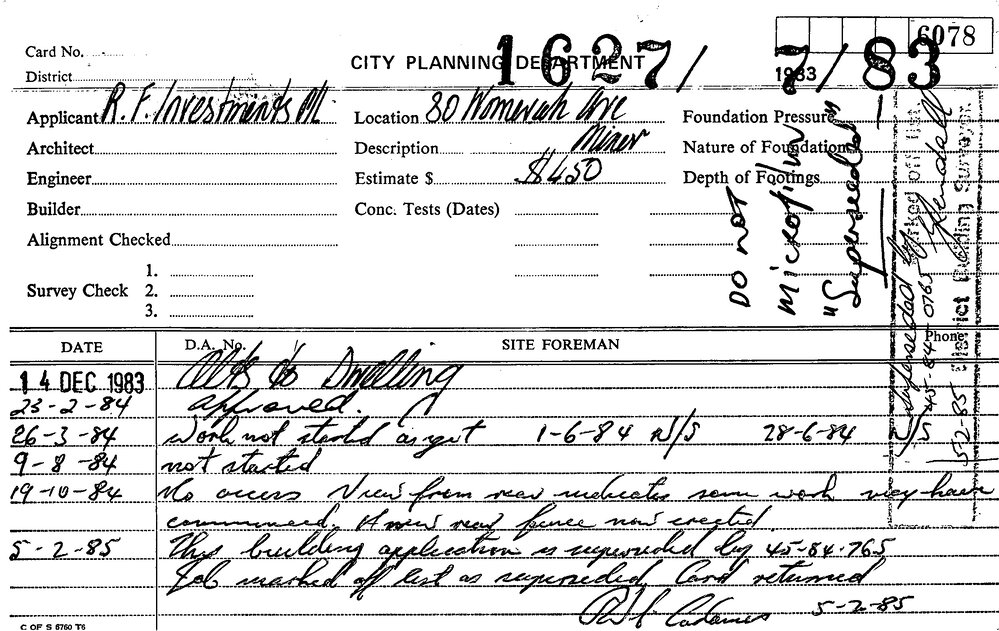 6078
1627/ 7/83
1983
Card No.
District
CITY PLANNING DEPARTMENT
Applicant R.F. Investments Pl.
Location 80 Womerah Ave
Foundation Pressure
Architect
Description Minor
Nature of Foundation
Engineer
Estimate $ $450
Depth of Footings
Builder
Conc. Tests (Dates)
Alignment Checked
1.
Survey Check 2.
3.
DO NOT
microfilm
"Superseded"
marked off list
Superseded by
45-84-0765
District Building Surveyor
5-2-85
DATE
D.A. No.
SITE FOREMAN
Phone
14 DEC 1983 Alts to Dwelling
23-2-84 approved.
26-3-84 work not started as yet 1-6-84 N/S 28-6-84
9-8-84 not started
19-10-84 No access View from rear indicates some work may have
commenced. A new rear fence now erected.
5-2-85 This building application is superseded by 45-84-765
Job marked off list as superseded, Card returned
5-2-85
C OF S 6760 T6